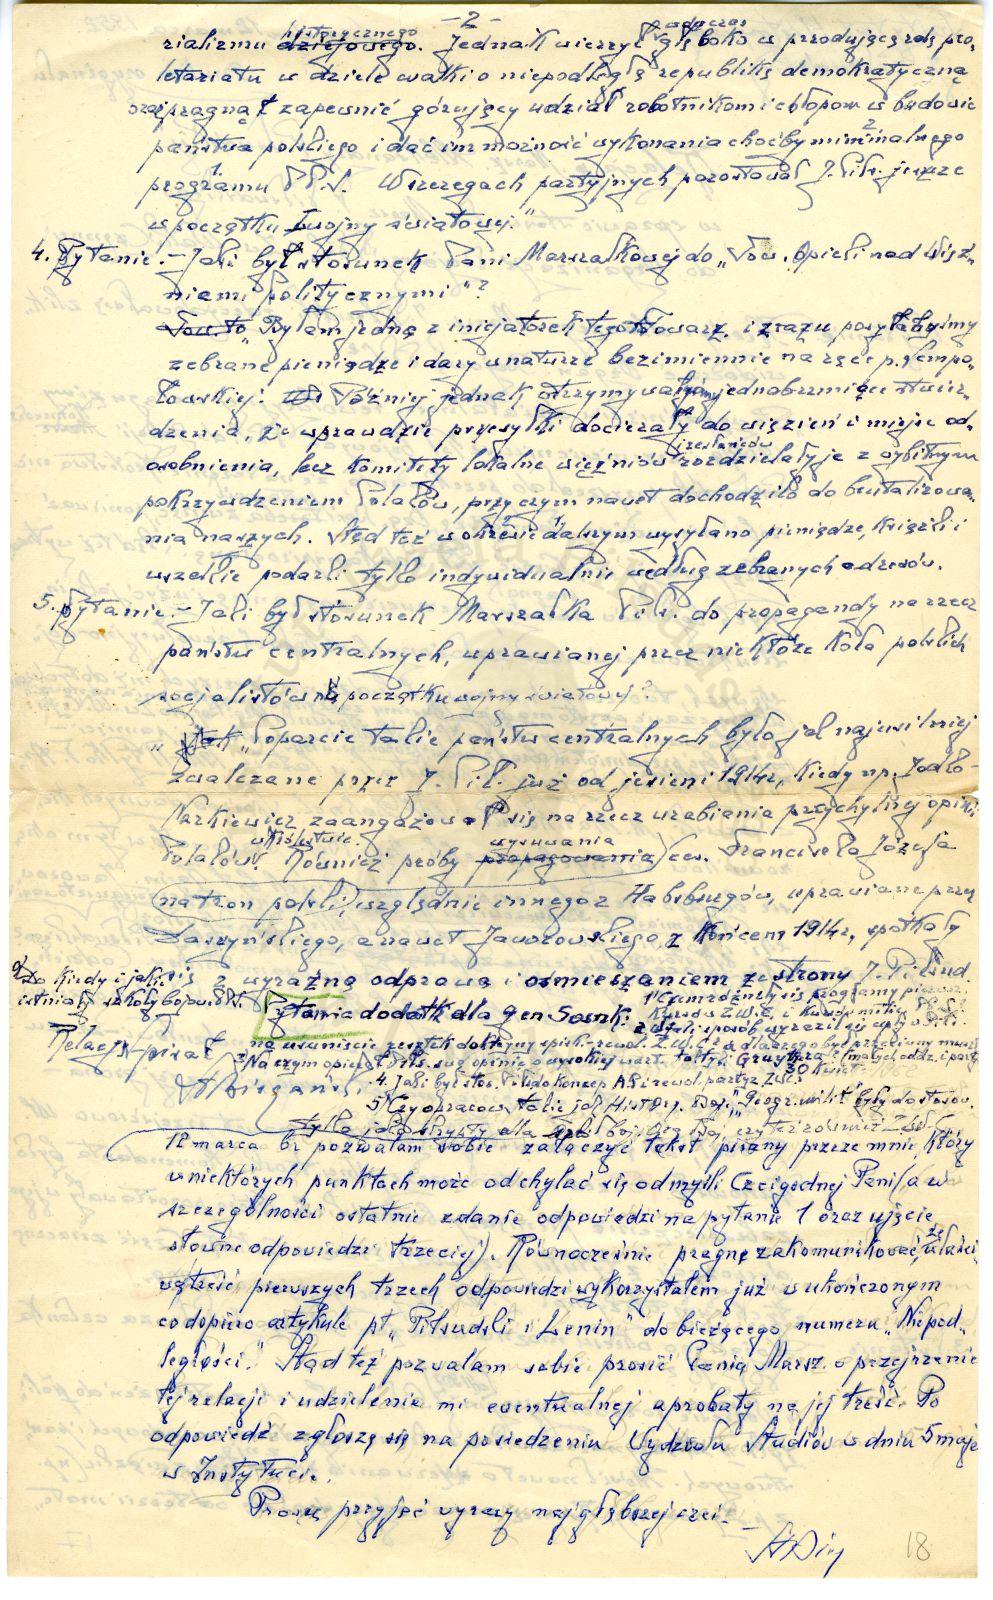 - 2 -
rializmu dziejowego historycznego. Jednak wierzył głęboko wówczas w przodującą rolę pro-
letariatu w dziele walki o niepodległą republikę demokratyczną
oraz pragnął zapewnić górujący udział robotnikom i chłopom w budowie
państwa polskiego i dać im możność wykonania choćby minimalnego
programu P.P.S. W szeregach partyjnych pozostawał J. Piłs. jeszcze
w początku I wojny światowej."
4. Pytanie. - Jaki był stosunek Pani Marszałkowej do „Tow. Opieki nad Więź-
niami politycznymi"?
Tow. to „Byłam jedną z inicjatorek tego towarz. i zrazu posyłałyśmy
zebrane pieniądze i dary w naturze bezimiennie na ręce p. Sempo-
łowskiej. Później jednak otrzymywałyśmy jednobrzmiące stwier-
dzenia, że wprawdzie przesyłki docierały do więzień i miejsc od-
osobnienia, lecz komitety lokalne więźniów i zesłańców rozdzielały je z wybitnym
pokrzywdzeniem Polaków, przy czym nawet dochodziło do brutalizowa-
nia naszych. Stąd też w okresie dalszym wysyłano pieniądze, książki i
wszelkie podarki tylko indywidualnie według zebranych adresów.
5. Pytanie. - Jaki był stosunek Marszałka Piłs. do propagandy na rzecz
państw centralnych, uprawianej przez niektóre koła polskich
socjalistów na początku wojny światowej?
„Poparcie takie państw centralnych było jak najsilniej
zwalczane przez J. Pił. już od jesieni 1914 r., kiedy np. Jodko-
Narkiewicz zaangażował się na rzecz urabiania przychylnej opinii
Polaków w Królestwie. Również próby propagowania wysuwania ces. Franciszka Józefa
na tron polski, względnie innego z Habsburgów, uprawiane przez
Daszyńskiego, a nawet Jaworowskiego, z końcem 1914 r., spotkały
się z wyraźną odprawą i ośmieszaniem ze strony J. Piłsud.
Do kiedy i jakie
istniały szkoły bojow. P.P.S.
Pytania dodatk. dla gen Sosnk:
1) Czem różniły się programy pierwsz.
kursów Z.W.C. i kursów milit. P.P.S.?
Relację spisał
4. Jaki był stos.
12 marca br. pozwalam sobie załączyć tekst pisany przeze mnie, który
w niektórych punktach może odchylać się od myśli Czcigodnej Pani (a w
szczególności ostatnie zdanie odpowiedzi na pytanie 1 oraz ujęcie
słowne odpowiedzi trzeciej). Równocześnie pragnę zakomunikować, że właści-
wą treść pierwszych trzech odpowiedzi wykorzystałem już w ukończonym
co dopiero artykule pt „Piłsudski i Lenin" do bieżącego numeru „Niepod-
ległości". Stąd też pozwalam sobie prosić Panią Marsz. o przejrzenie
tej relacji i udzielenie mi ewentualnej aprobaty na jej treść. Po
odpowiedź zgłoszę się na posiedzeniu Wydziału Studiów w dniu 5 maja
w Instytucie.
Proszę przyjąć wyrazy najgłębszej czci. -
18